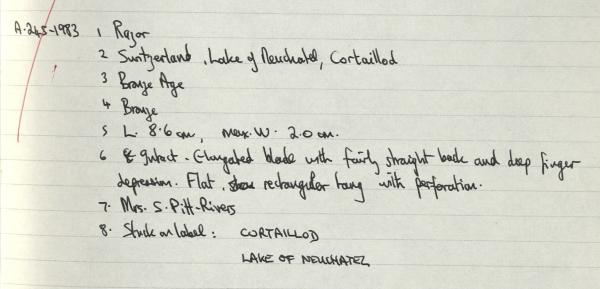 A.245-1983 1 Razor
2 Switzerland, Lake of Neuchatel, Cortaillod
3 Bronze Age
4 Bronze
5 L. 8.6 cm, max. W. 2.0 cm.
6 Intact - Elongated blade with fairly straight back and deep finger
depression. Flat, rectangular tang with perforation.
7. Mrs. S. Pitt-Rivers
8. Stuck on label: CORTAILLOD
LAKE OF NEUCHATEL